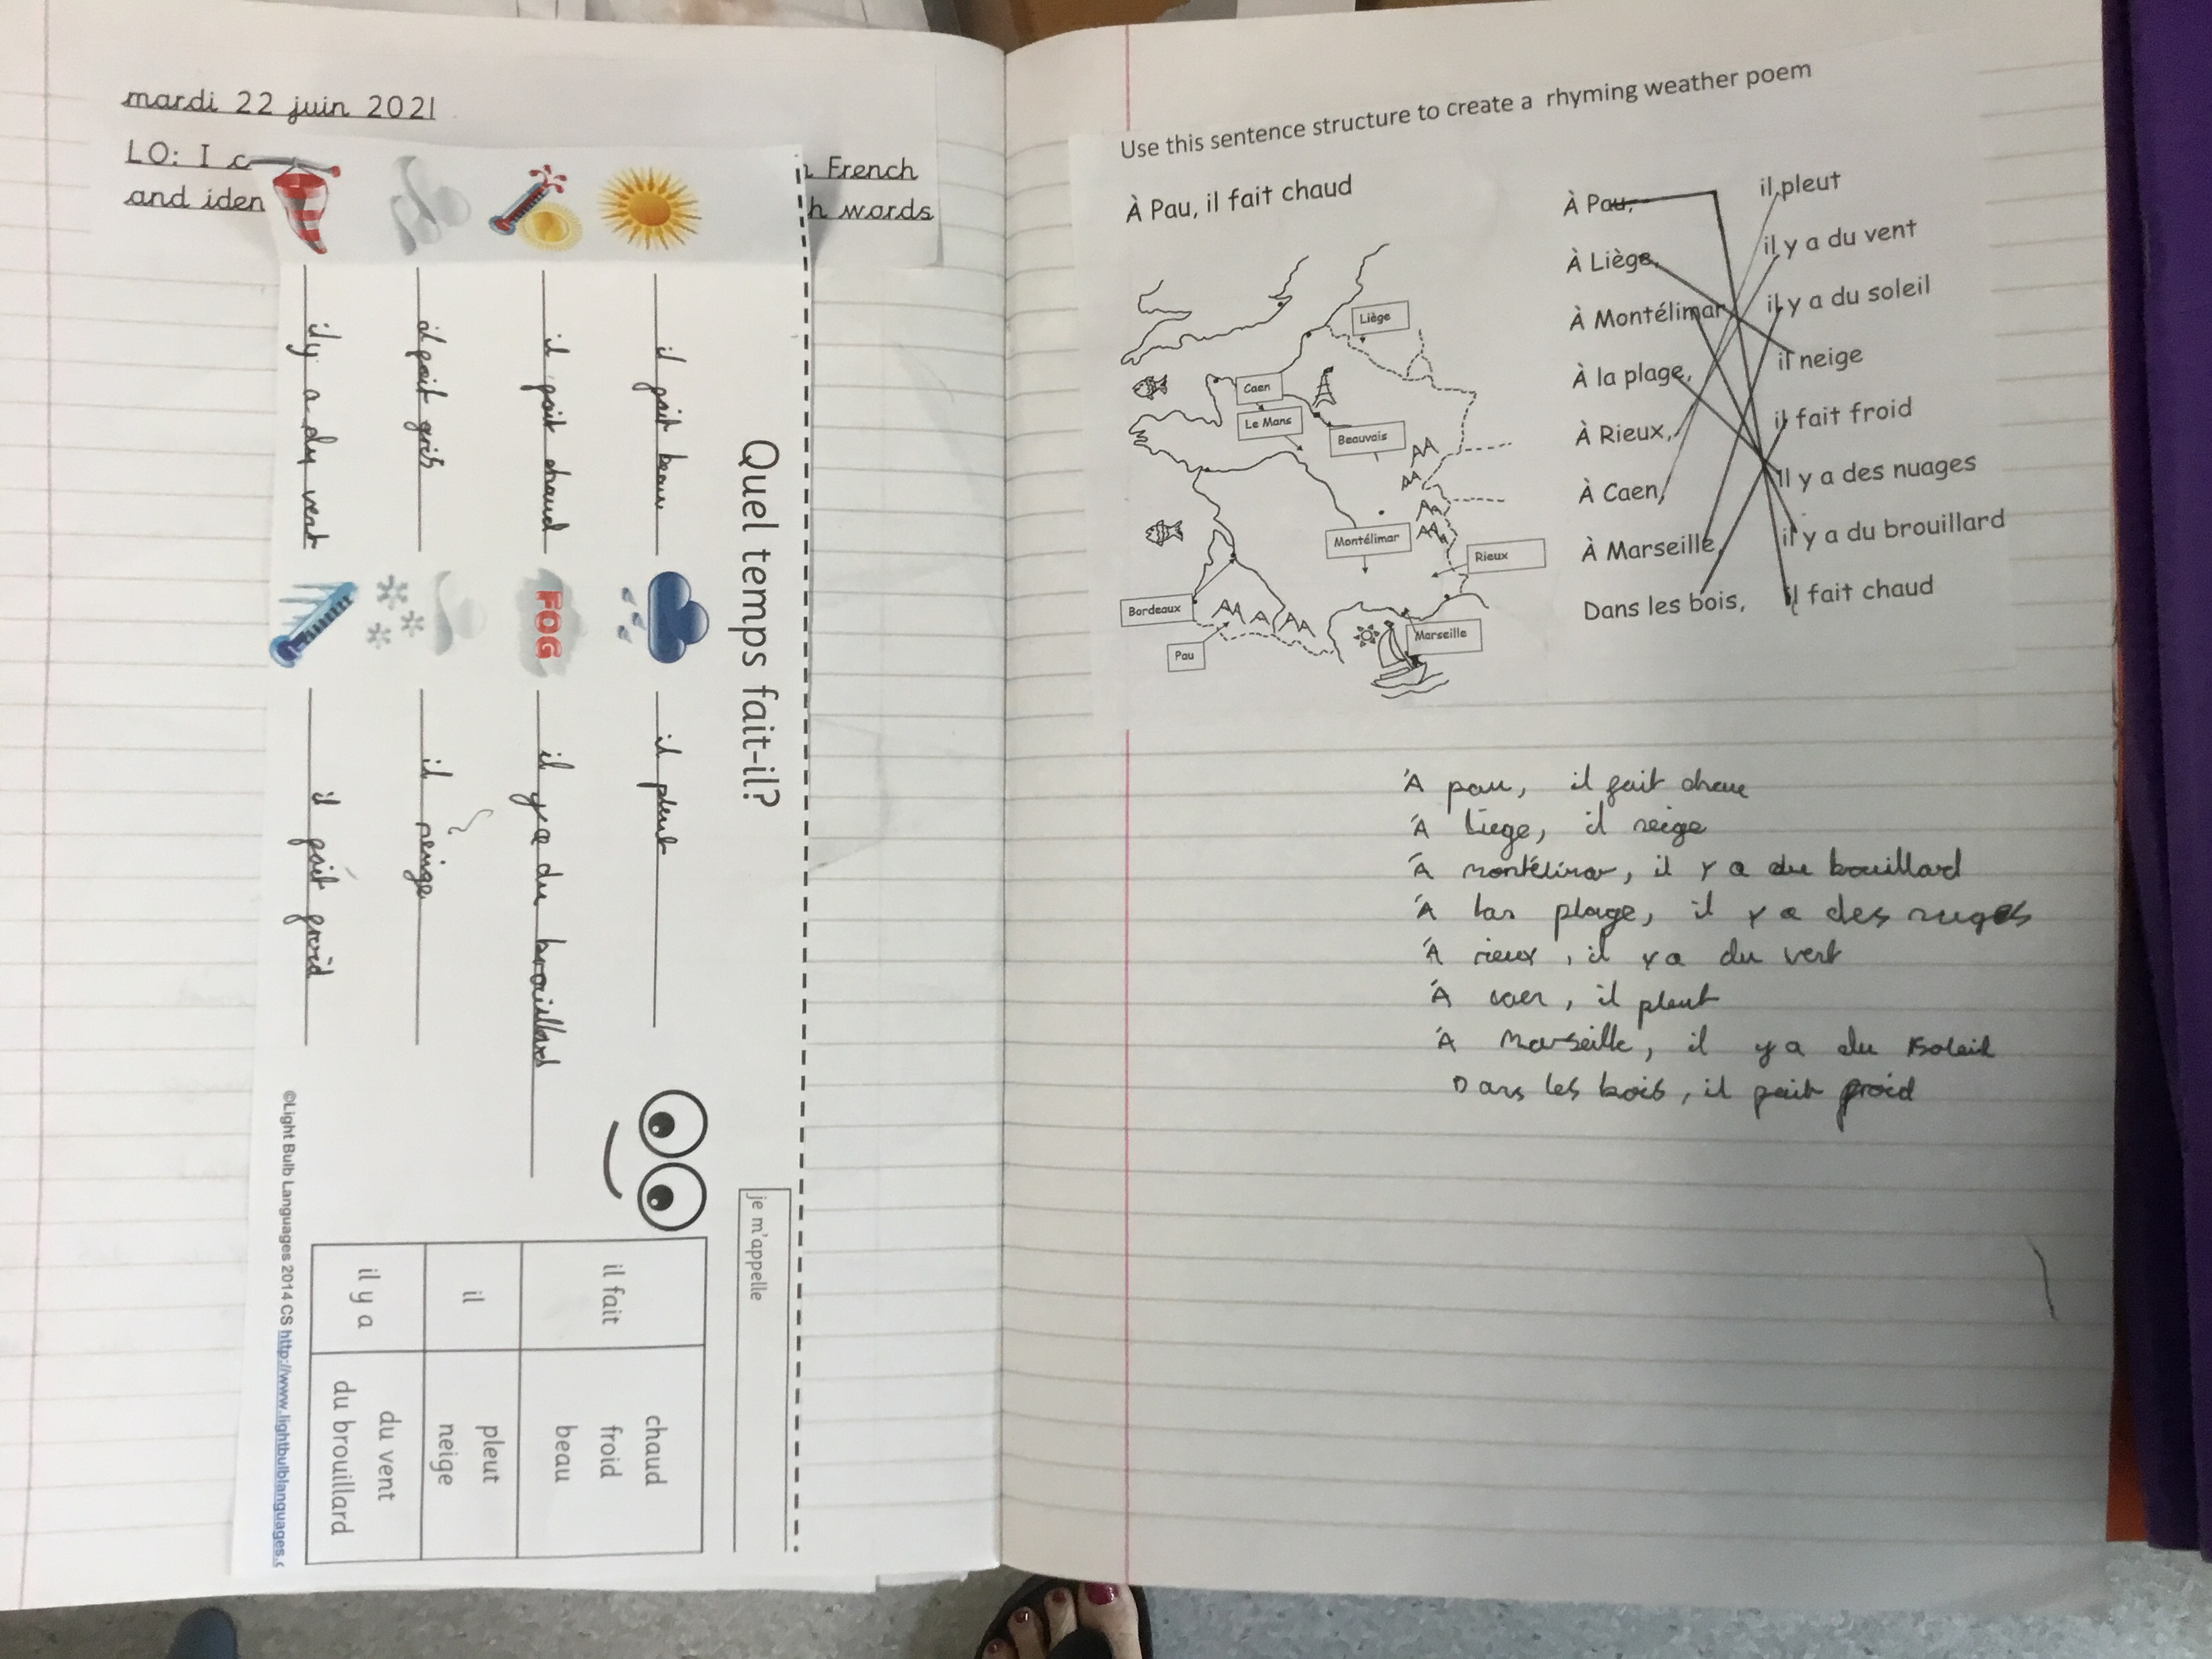 mardi 22 juin 2021
LO: I c
n French
and iden
h words
Quel temps fait-il?
je m'appelle
il fait beau
il pleut
il fait chaud
FOG
il y a du brouillard
il fait gris
il neige
il y a du vent
il fait froid
il fait
chaud
froid
beau
il
pleut
neige
il y a
du vent
du brouillard
©Light Bulb Languages 2014 CS http://www.lightbulblanguages.c
Use this sentence structure to create a rhyming weather poem
À Pau, il fait chaud
Liège
Caen
Le Mans
Beauvais
Montélimar
Rieux
Bordeaux
Pau
Marseille
À Pau,
À Liège,
À Montélimar
À la plage,
À Rieux,
À Caen,
À Marseille,
Dans les bois,
il pleut
il y a du vent
il y a du soleil
il neige
il fait froid
Il y a des nuages
il y a du brouillard
il fait chaud
À pau, il fait
À Liege, il neige
À montélimar, il y a du bouillard
À plage, il y a des nuges
À rieux, il y a du vent
À caen, il pleut
À Marseille, il y a du soleil
Dans les bois, il fait froid